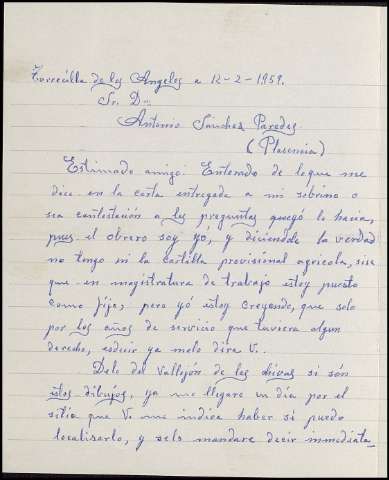 Torrecilla de los Angeles a 12-2-1959.
Sr. Dn.
Antonio Sánchez Paredes.
(Plasencia)
Estimado amigo: Enterado de loque me
dice en la carta entregada a mi sobrino o
sea contestación a las preguntas quegó le hacia,
pues el obrero soy yó, y diciendole la verdad
no tengo ni la cartilla provisional agricola, sise
que en magistratura de trabajo estoy puesto
como fijo, pero yó estoy creyendo, que solo
por los años de servicio que tuviera algun
derecho, esdecir ya melo dira V..
Delo del Vallejón de las chivas si són
estos dibujos, ya me llegare un día por el
sitia que V. me indica haber si puedo
localisarlo, y selo mandare decir inmediata_